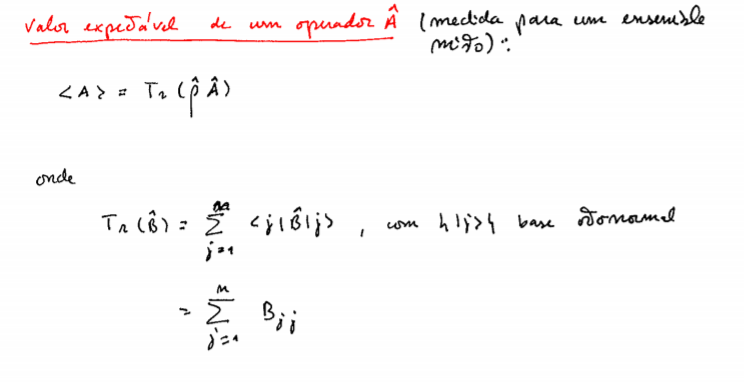 Valor expectável de um operador Â (medida para um ensemble misto):
<A> = Tr(ρ̂ Â)
onde
Tr(B̂) = Σ_{j=1}^{n} <j|B̂|j>, com {|j>} base ortonormal
= Σ_{j=1}^{n} B_{jj}